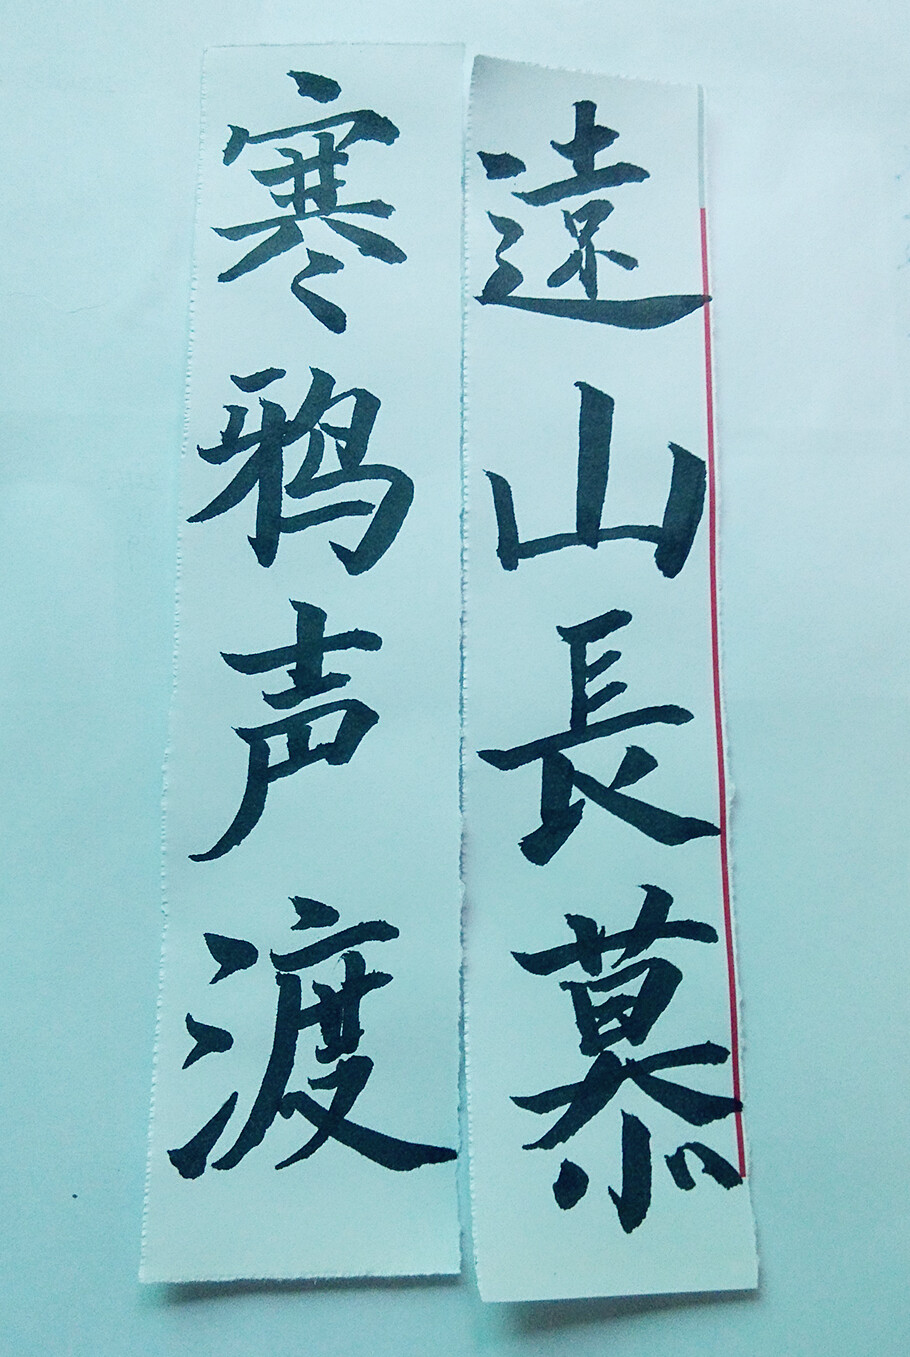 遠山長慕
寒鸦声渡